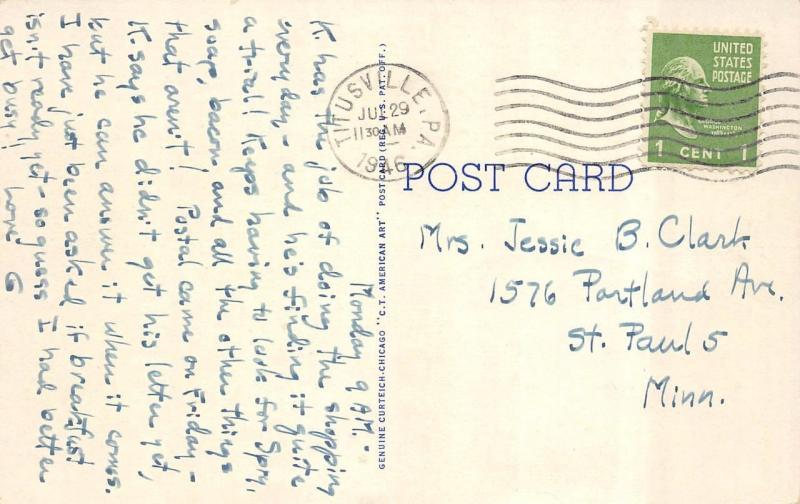 Monday 9 A.M.
K. has the job of doing the shopping
everyday - and he's finding it quite
a trial! Keeps having to look for Spry,
soap, bacon and all the other things
that aren't! Postal came on Friday -
K. says he didn't get his letter yet,
but he can answer it when it comes.
I have just been asked if breakfast
isn't ready yet - so guess I had better
get busy! love G
GENUINE CURTEICH-CHICAGO "C.T. AMERICAN ART" POST CARD (REG. U.S. PAT. OFF.)
TITUSVILLE, PA.
JUL 29
11 30 AM
1946
UNITED
STATES
POSTAGE
WASHINGTON
1 CENT 1
POST CARD
Mrs. Jessie B. Clark
1576 Portland Ave.
St. Paul 5
Minn.